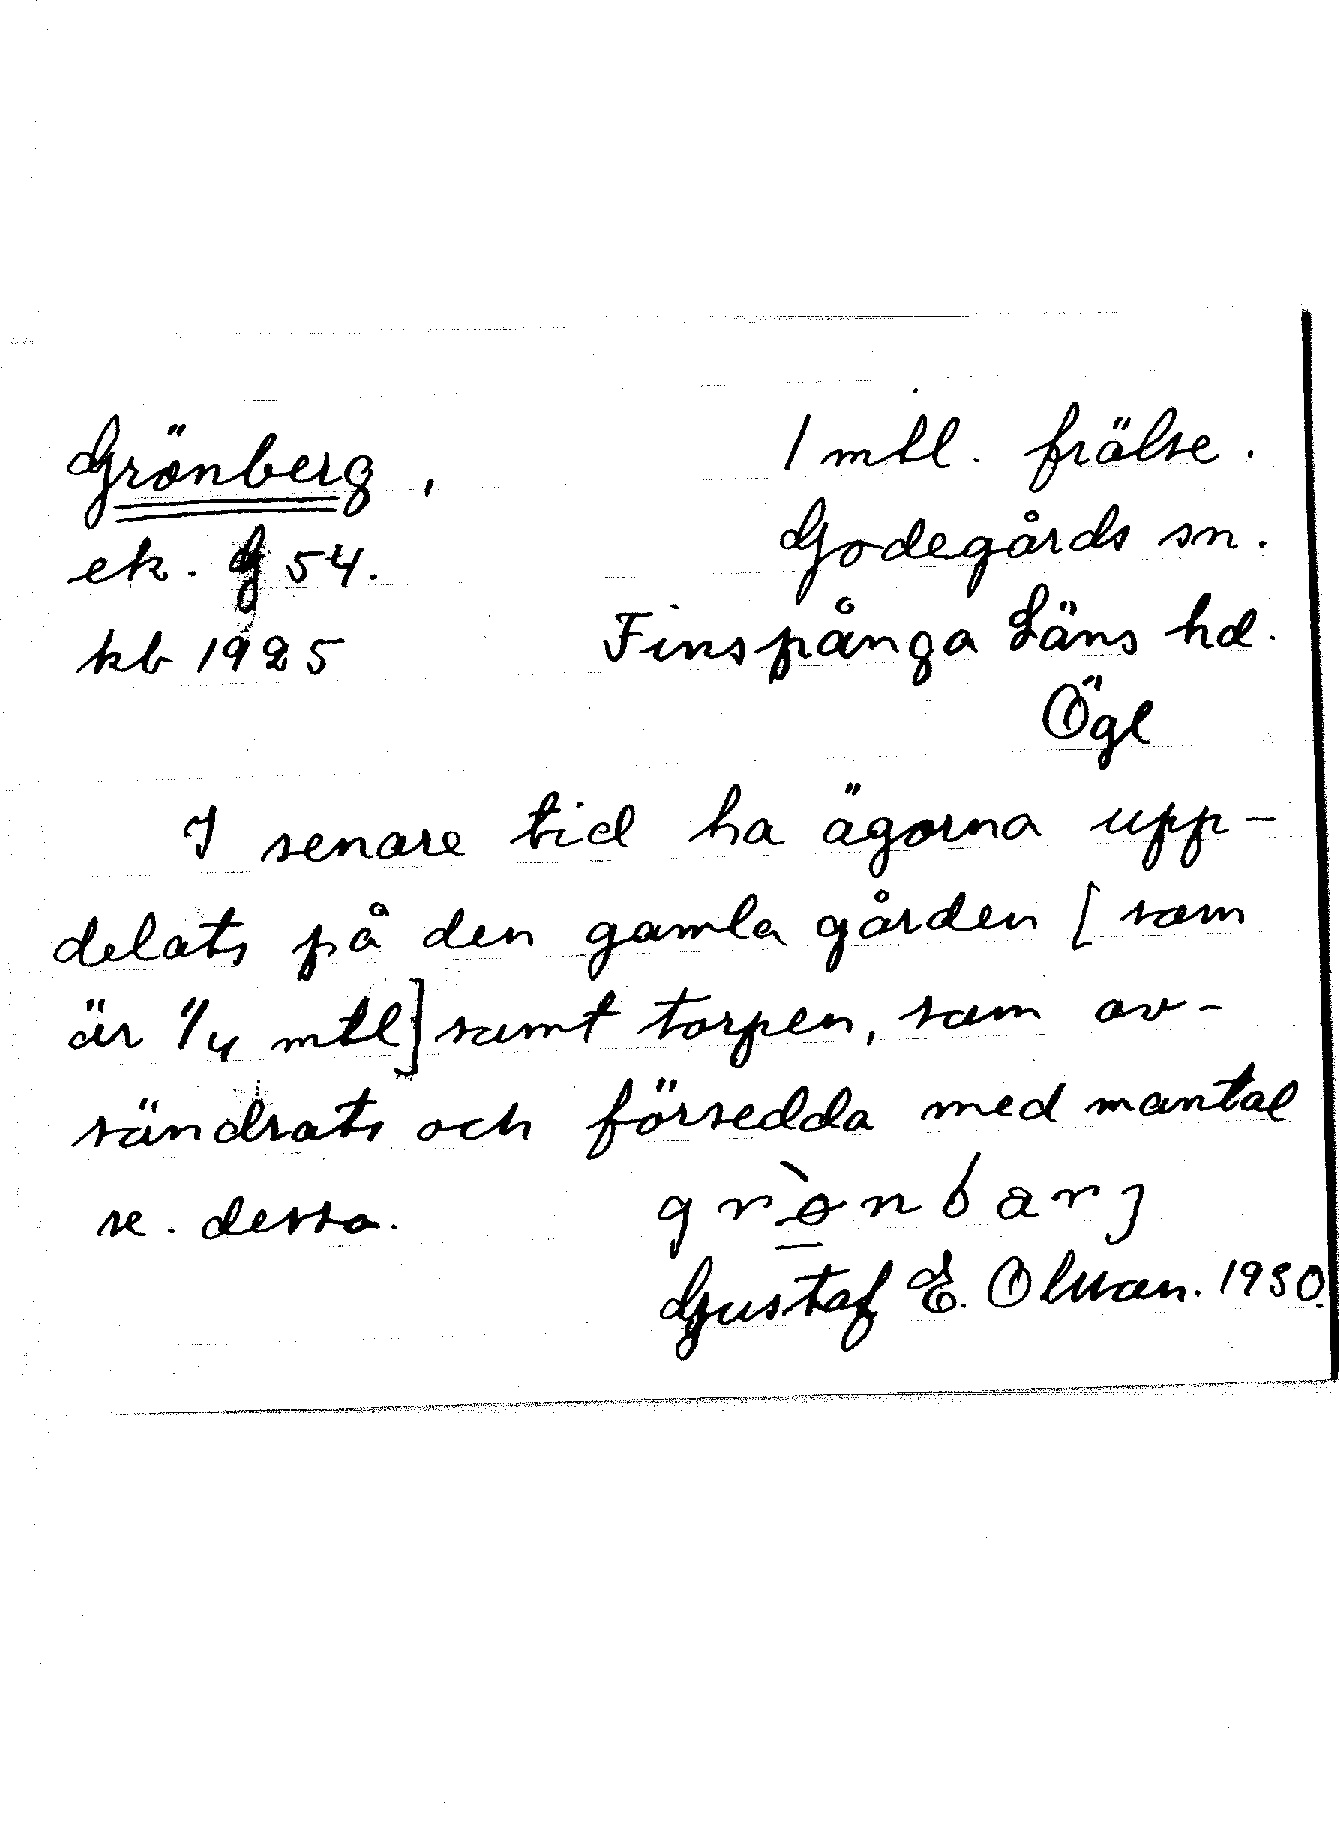 Grönberg,
1 mtl. frälse.
ek. G 54.
Godegårds sn.
kb 1925
Finspånga Läns hd.
Ögl
I senare tid ha ägorna upp-
delats på den gamla gården [som
är 1/4 mtl] samt torpen, som av-
söndrats och försedda med mantal
se. dessa.
grø̀nbarj
Gustaf E. Olsson. 1930.